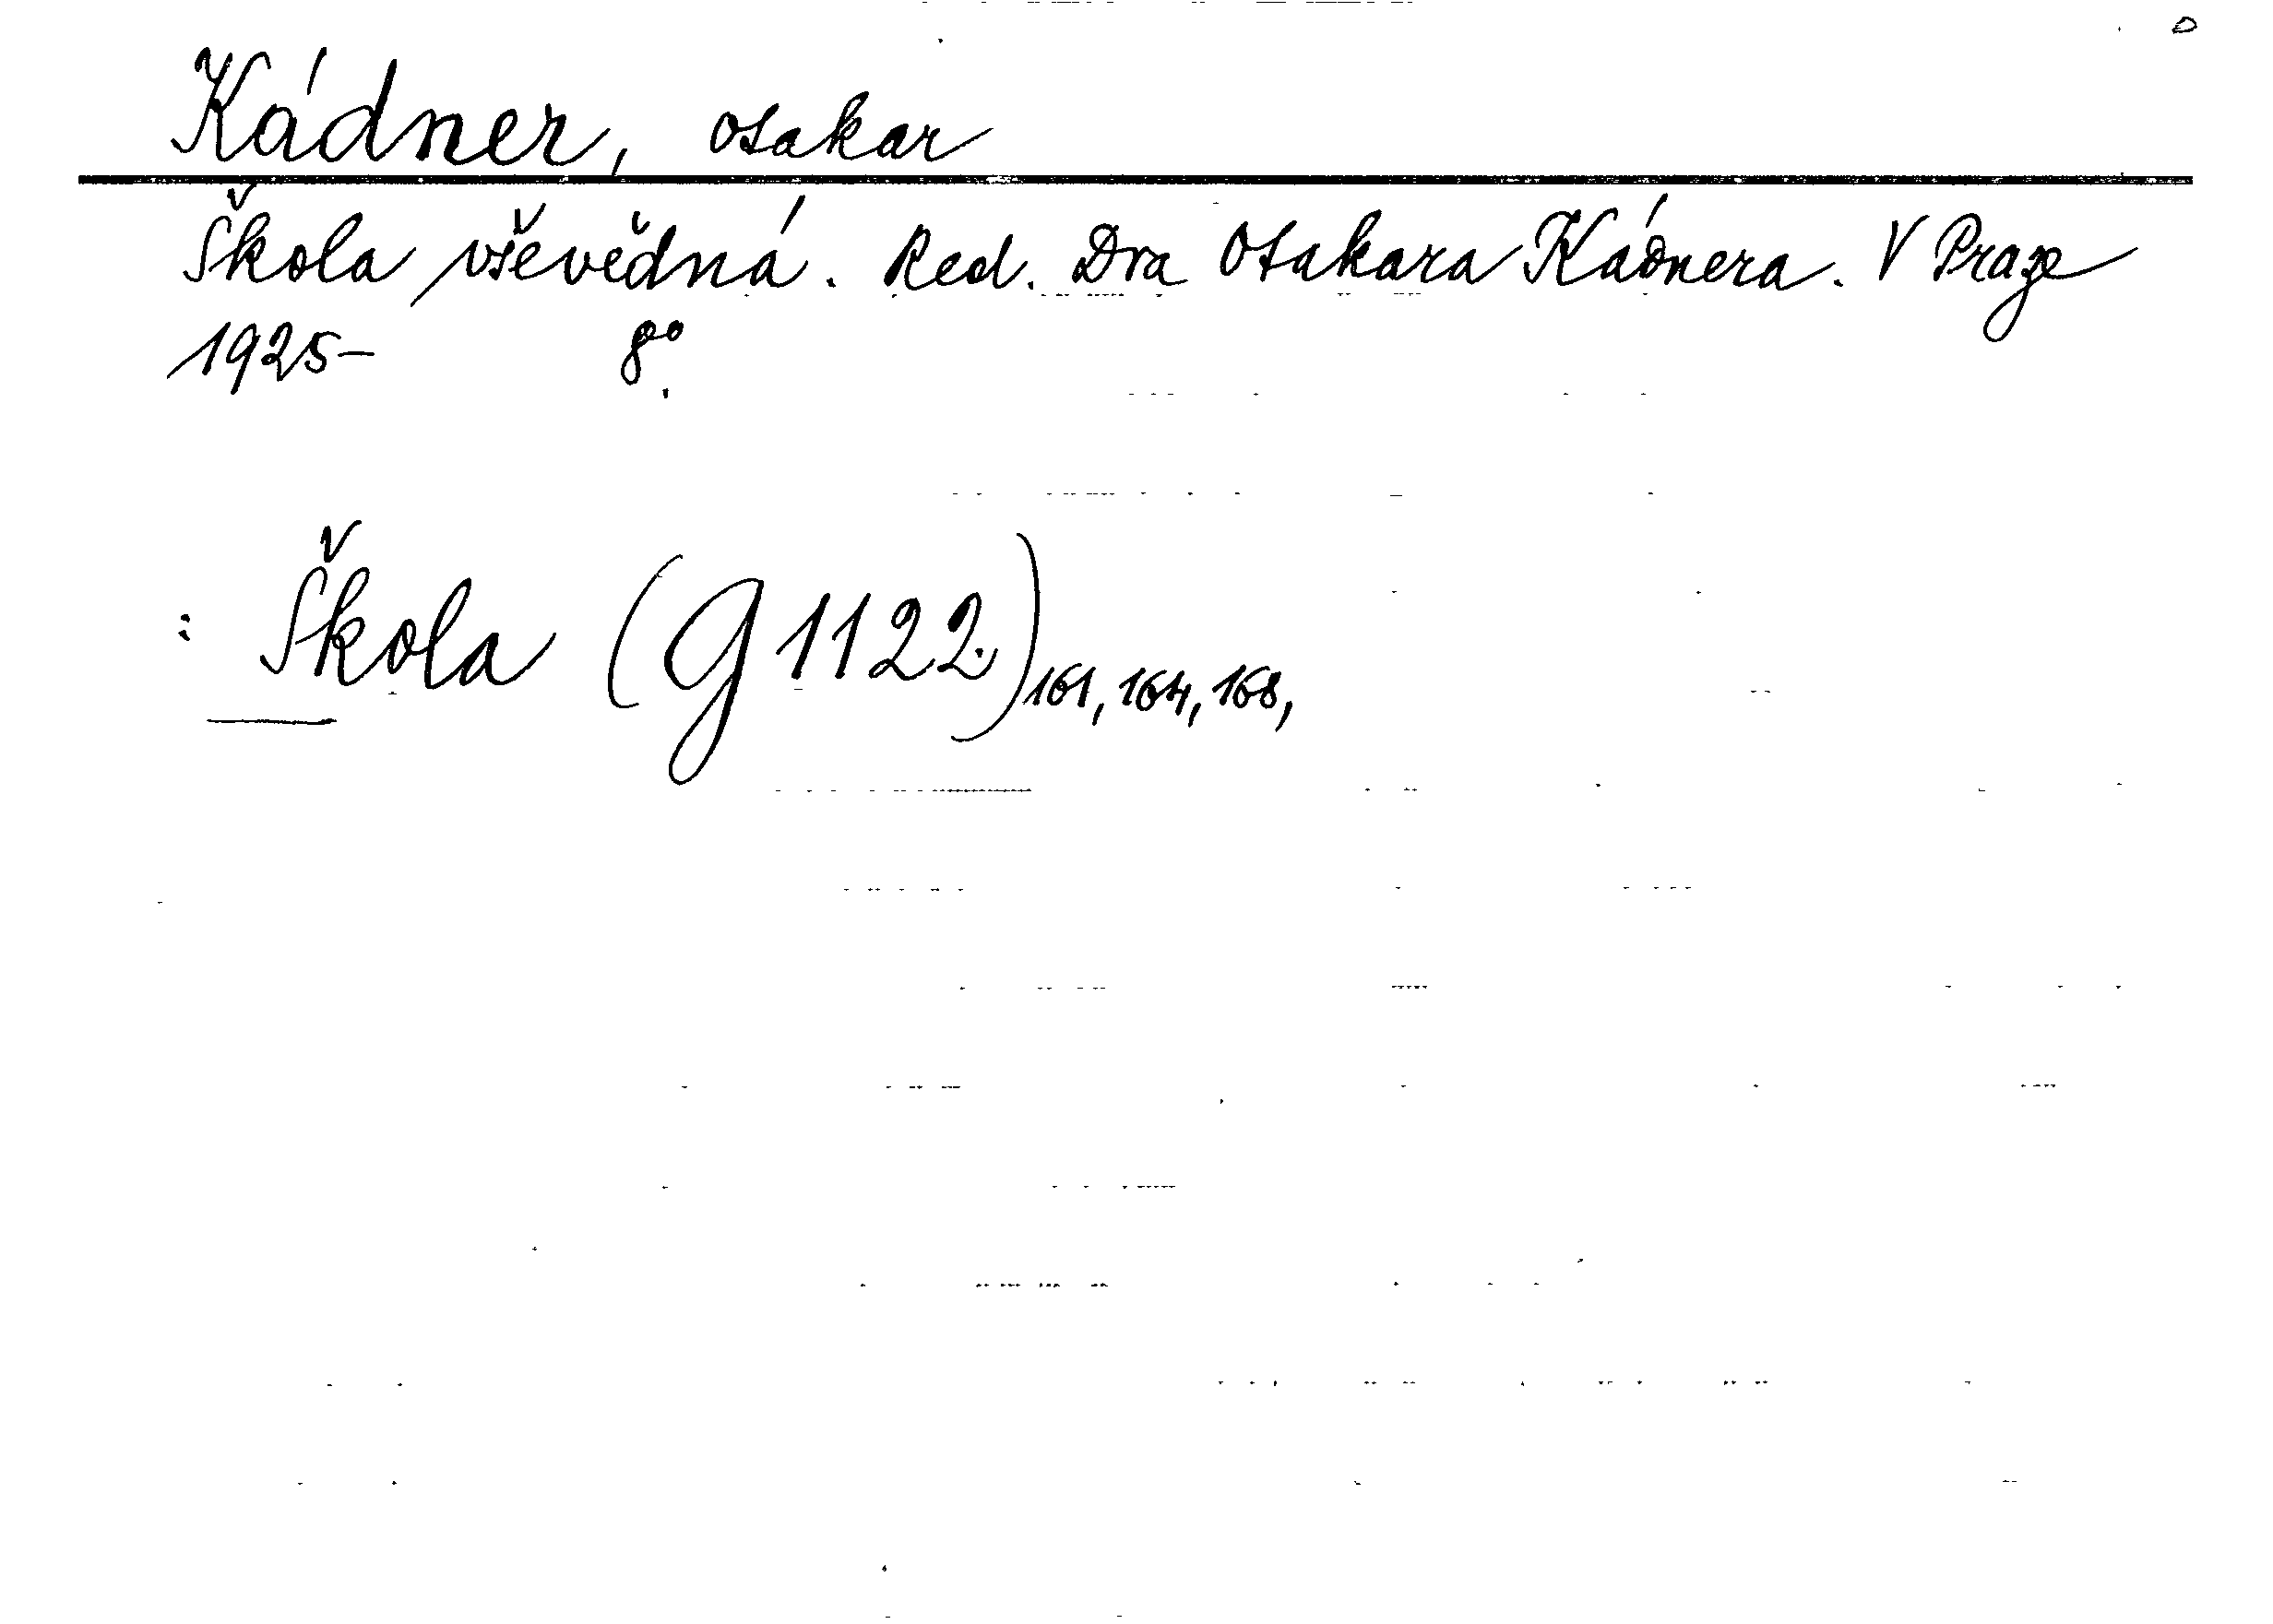 Kádner, Otakar
Škola vševědná. Red. Dra Otakara Kádnera. V Praze
1925- 8°.
: Škola (G 1122) 161, 164, 168,